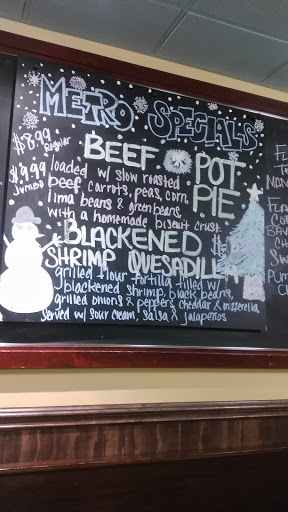 METRO SPECIALS
$8.99 Regular
$9.99 Jumbo
BEEF POT PIE
loaded w/ slow roasted
beef, carrots, peas, corn,
lima beans & green beans,
with a homemade biscuit crust.
BLACKENED
SHRIMP QUESADILLA
grilled flour tortilla filled w/
blackened shrimp, black beans,
grilled onions & peppers, cheddar & mozzerella
served w/ sour cream, salsa & jalapeños